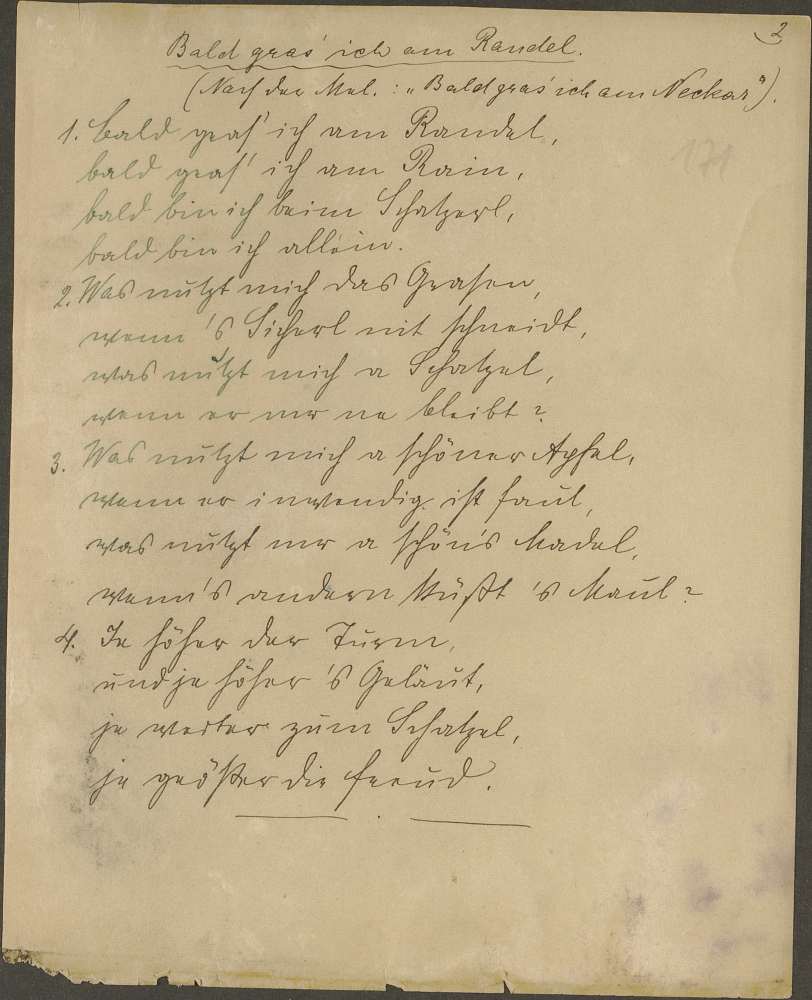 2
Bald gras' ich am Randel.
(Nach der Mel.: "Bald gras' ich am Neckar").
1. Bald gras' ich am Randel,
171
bald gras' ich am Rain,
bald bin ich beim Schatzerl,
bald bin ich allein.
2. Was nützt mich das Grasen,
wenn 's Sicherl nit schneidt,
was nützt mich a Schatzel,
wenn er mir ne bleibt?
3. Was nützt mich a schöner Apfel,
wenn er inwendig ist faul,
was nützt mir a schön's Madel,
wenn's andern küßt 's Maul?
4. Je höher der Turm,
und je höher 's Geläut,
je weiter zum Schatzel,
je größer die Freud.